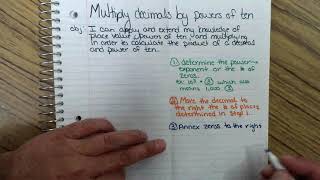 Multiply decimals by powers of ten
obj: I can apply and extend my knowledge of
place value, powers of ten, and multiplying
in order to calculate the product of a decimal
and power of ten.
① determine the power-
exponent or the # of
zeros.
ex: 10³ ③ which also
means 1,000 ③
② Move the decimal to
the right the # of places
determined in Step 1.
③ Annex zeros to the right